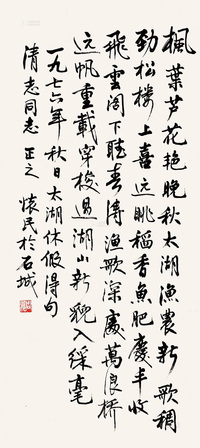 楓葉芦花艳晚秋太湖漁農新歌稠
劲松楼上喜远眺稻香魚肥慶丰收
飛雲阁下聴春涛漁歌深處萬浪桥
远帆重載穿梭過湖山新貌入綵毫
一九七六年秋日太湖休假得句
清志同志正之 懷民於石城